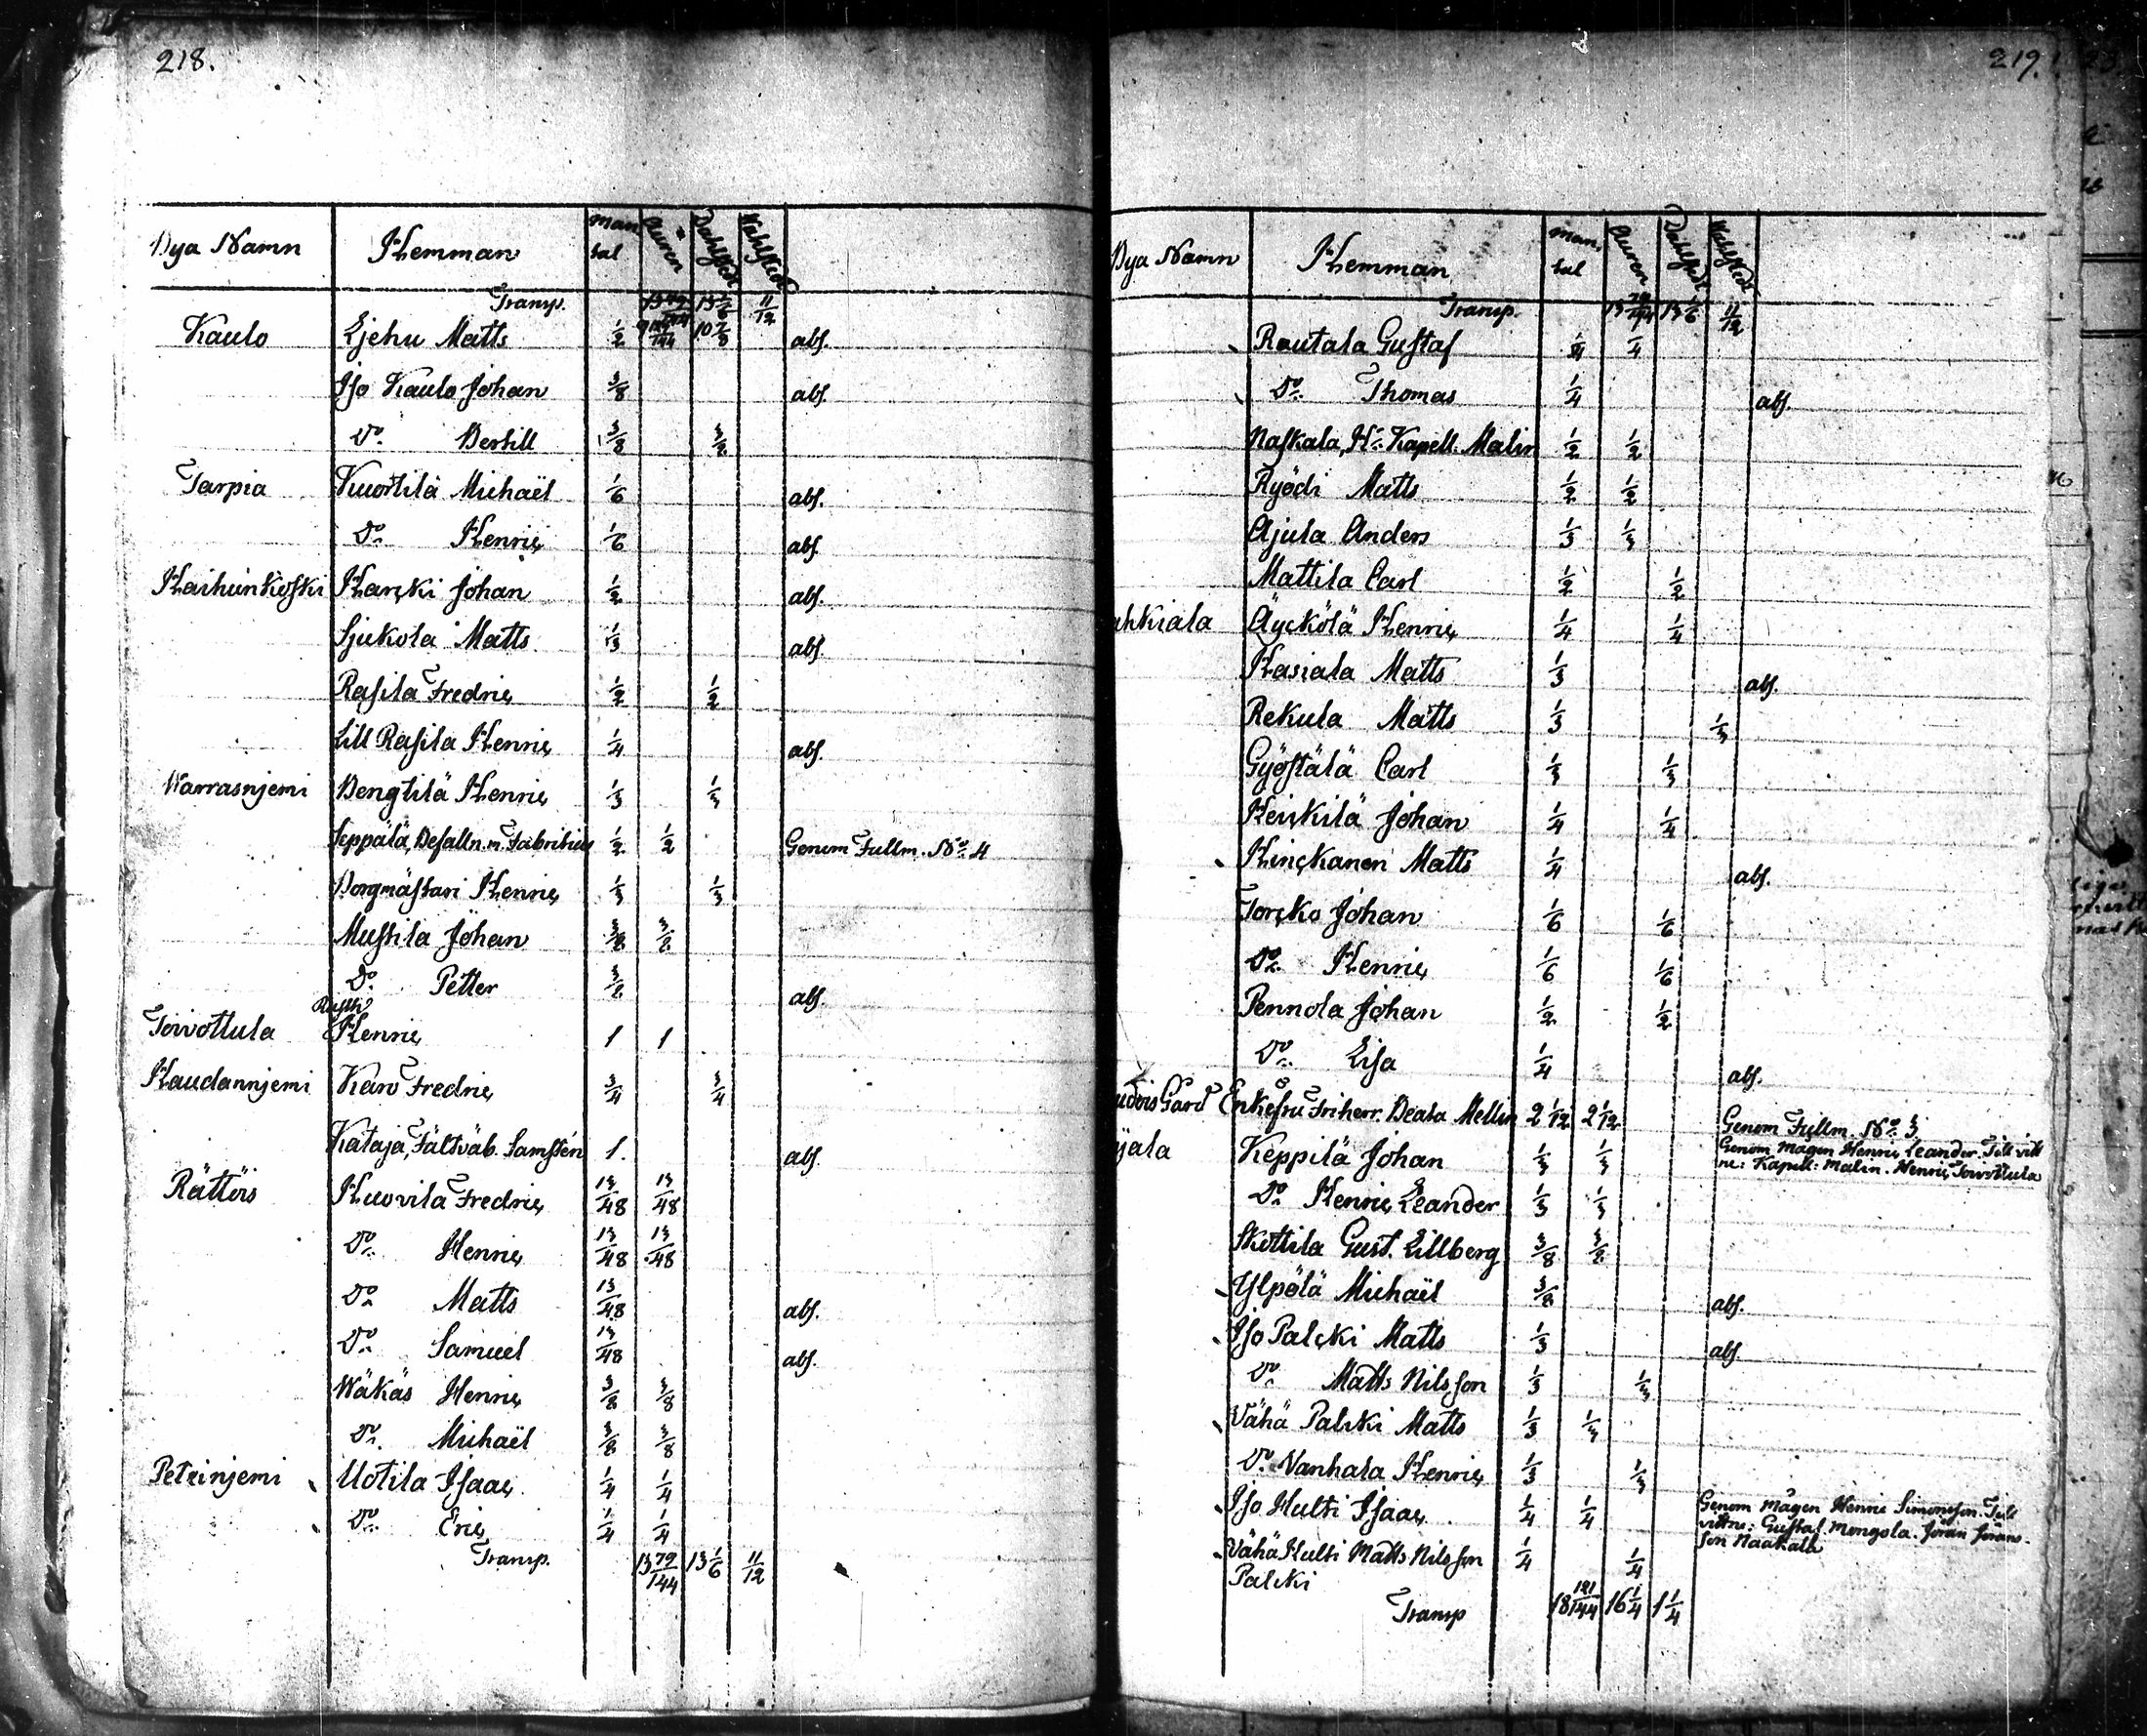 218.
Bya Namn Hemman Man tal Auren Dahlstedt Wahlstedt
Transp. 13 79/144 13 1/6 11/12
Kaulo Ejehu Matts 1/2 10 2/3 abs.
Iso Kaulo Johan 3/8 abs.
Do. Bertill 3/8 3/8
Tarpia Kuortila Michaël 1/6 abs.
Do. Henric 1/6 abs.
Haihunkoski Harcki Johan 1/2 abs.
Sjukola Matts 1/3 abs.
Rasila Fredric 1/2 1/2
Lill Rasila Henric 1/4 abs.
Warrasnjemi Bengtilä Henric 1/3 1/3
Seppälä, Befalln.m. Fabritius 1/2 1/2 Genom Fullm. No. 4
Borgmästari Henric 1/3 1/3
Mustila Johan 3/8 3/8
Do. Petter 3/8 abs.
Toivottula Rusth. Henric 1 1
Haudannjemi Karo Fredric 3/4 3/4
Kataja, Fältväb. Samstén 1. abs.
Rättöis Huovila Fredric 13/48 13/48
Do. Henric 13/48 13/48
Do. Matts 13/48 abs.
Do. Samuel 13/48 abs.
Wäkäs Henric 3/8 3/8
Do. Michaël 3/8 3/8
Petrinjemi Uotila Isaac 1/4 1/4
Do. Eric 1/4 1/4
Transp. 13 79/144 13 1/6 11/12
219.
Bya Namn Hemman Man tal Auren Dahlstedt Wahlstedt
Transp. 13 79/144 13 1/6 11/12
Rautala Gustaf 1/4 1/4
Do. Thomas 1/4 abs.
Naskala, Hr. Kapell. Malin 1/2 1/2
Ryödi Matts 1/2 1/2
Ajula Anders 1/3 1/3
Mattila Carl 1/2 1/2
uhkiala Äyckölä Henric 1/4 1/4
Hasiala Matts 1/3 abs.
Rekula Matts 1/3 1/3
Gyöstälä Carl 1/3 1/3
Heickilä Johan 1/4 1/4
Hinckanen Matts 1/4 abs.
Torcko Johan 1/6 1/6
Do. Henric 1/6 1/6
Pennola Johan 1/2 1/2
Do. Lisa 1/4 abs.
Gård Enkefru Friherr. Beata Mellin 2 1/12 2 1/12 Genom Fullm. No. 3
jala Keppilä Johan 1/3 1/3 Genom Mågen Henric Leander. Till vitt
ne: Kapell: Malin. Henric Toivottula
Do. Henric Leander 1/3 1/3
Skottila Gust. Lillberg 3/8 3/8
Ylpölä Michaël 3/8 abs.
Iso Palcki Matts 1/3 abs.
Do. Matts Nilsson 1/3 1/3
Vähä Palcki Matts 1/3 1/3
Do. Vanhala Henric 1/3 1/3
Iso Hulti Isaac 1/4 1/4 Genom mågen Henric Simonsson. Till
vittne: Gustaf Mongola. Jöran Jörans-
son Naakala
Vähä Hulti Matts Nilsson 1/4 1/4
Palcki
Transp 18 121/144 16 1/4 1 1/4